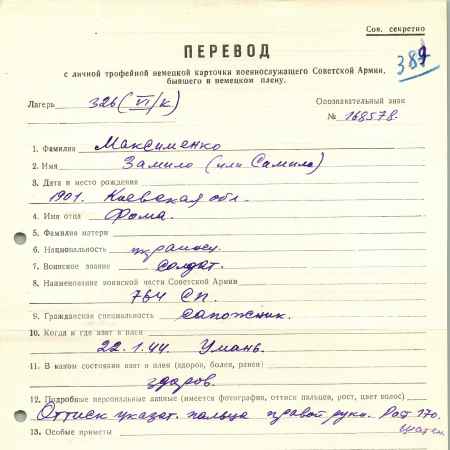 Сов. секретно
389
ПЕРЕВОД
с личной трофейной немецкой карточки военнослужащего Советской Армии,
бывшего в немецком плену.
Лагерь 326 (VI/к)
Опознавательный знак
№ 168578.
1. Фамилия Максименко
2. Имя Замило (или Самило)
3. Дата и место рождения
1901. Киевская обл.
4. Имя отца Фома.
5. Фамилия матери
6. Национальность украинец
7. Воинское звание солдат.
8. Наименование воинской части Советской Армии
764 сп.
9. Гражданская специальность сапожник.
10. Когда и где взят в плен
22.1.44. Умань.
11. В каком состоянии взят в плен (здоров, болен, ранен)
здоров.
12. Подробные персональные данные (имеется фотография, оттиск пальцев, рост, цвет волос)
Оттиск указат. пальца правой руки. Рост 170.
шатен.
13. Особые приметы